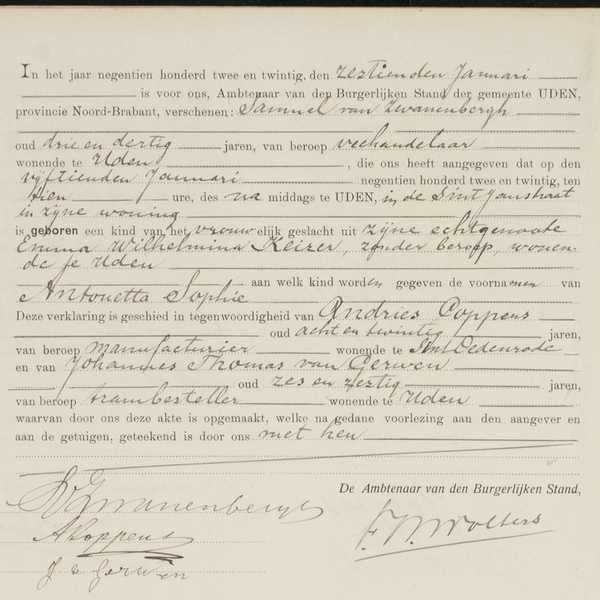 In het jaar negentien honderd twee en twintig, den zestienden Januari
is voor ons, Ambtenaar van den Burgerlijken Stand der gemeente UDEN,
provincie Noord-Brabant, verschenen: Samuel van Zwanenbergh
oud drie en dertig jaren, van beroep veehandelaar
wonende te Uden, die ons heeft aangegeven dat op den
vijftienden Januari negentien honderd twee en twintig, ten
tien ure, des na middags te UDEN, in de Sint Janstraat
in zijne woning
is geboren een kind van het vrouwelijk geslacht uit zijne echtgenoote
Emma Wilhelmina Keizer, zonder beroep, wonen-
de te Uden
aan welk kind worden gegeven de voornamen van
Antonetta Sophie
Deze verklaring is geschied in tegenwoordigheid van Andries Coppens
oud acht en twintig jaren,
van beroep manufacturier wonende te Sint Oedenrode
en van Johannes Thomas van Gerwen
oud zes en zestig jaren,
van beroep trambesteller wonende te Uden
waarvan door ons deze akte is opgemaakt, welke na gedane voorlezing aan den aangever en
aan de getuigen, geteekend is door ons met hen
De Ambtenaar van den Burgerlijken Stand,
S v Zwanenbergh
A Coppens
J v Gerwen